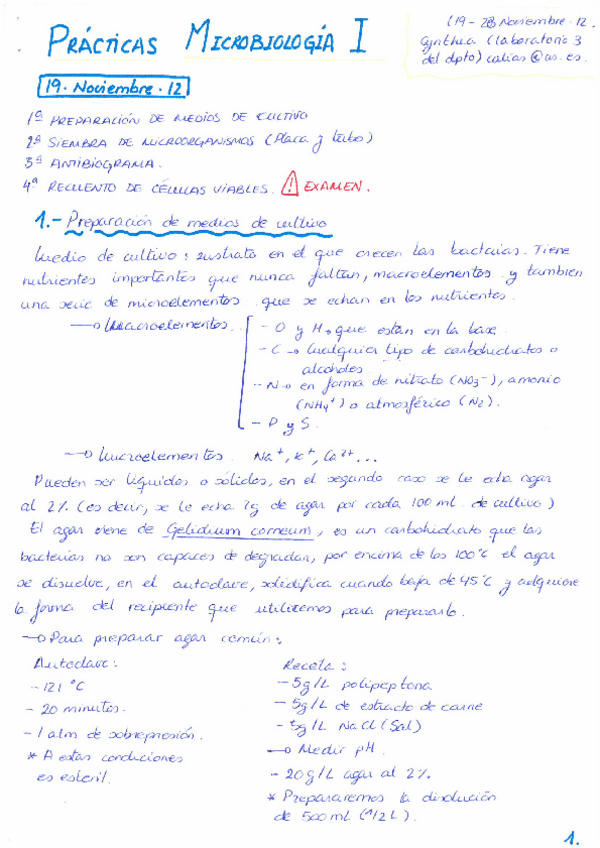 (19-28 Noviembre·12.
PRÁCTICAS MICROBIOLOGÍA I
Cynthia (laboratorio 3
del dpto) calias@us.es.
19·Noviembre·12
1ª PREPARACIÓN DE MEDIOS DE CULTIVO
2ª SIEMBRA DE MICROORGANISMOS (Placa y tubo)
3ª ANTIBIOGRAMA.
4ª RECUENTO DE CÉLULAS VIABLES. ! EXAMEN.
1.- Preparación de medios de cultivo
Medio de cultivo: sustrato en el que crecen las bacterias. Tiene
nutrientes importantes que nunca faltan, macroelementos y tambien
una serie de microelementos que se echan en los nutrientes.
→ Macroelementos.
- O y H → que están en la base.
- C → Cualquier tipo de carbohidratos o
alcoholes.
- N → en forma de nitrato (NO3-), amonio
(NH4+) o atmosférico (N2).
- P y S.
→ Microelementos. Na+, K+, Ca2+...
Pueden ser líquidos o sólidos, en el segundo caso se le echa agar
al 2% (es decir, se le echa 2g de agar por cada 100 ml. de cultivo)
El agar viene de Gelidium corneum, es un carbohidrato que las
bacterias no son capaces de degradar, por encima de los 100°C el agar
se disuelve, en el autoclave, solidifica cuando baja de 45°C y adquiere
la forma del recipiente que utilicemos para prepararlo.
→ Para preparar agar común:
Autoclave:
- 121 °C
- 20 minutos.
- 1 atm de sobrepresión.
* A estas condiciones
es esteril.
Receta:
- 5g/L polipeptona
- 5g/L de extracto de carne
- 5g/L NaCl (Sal)
→ Medir pH.
- 20g/L agar al 2%.
* Prepararemos la disolución
de 500 mL (1/2 L).
1.